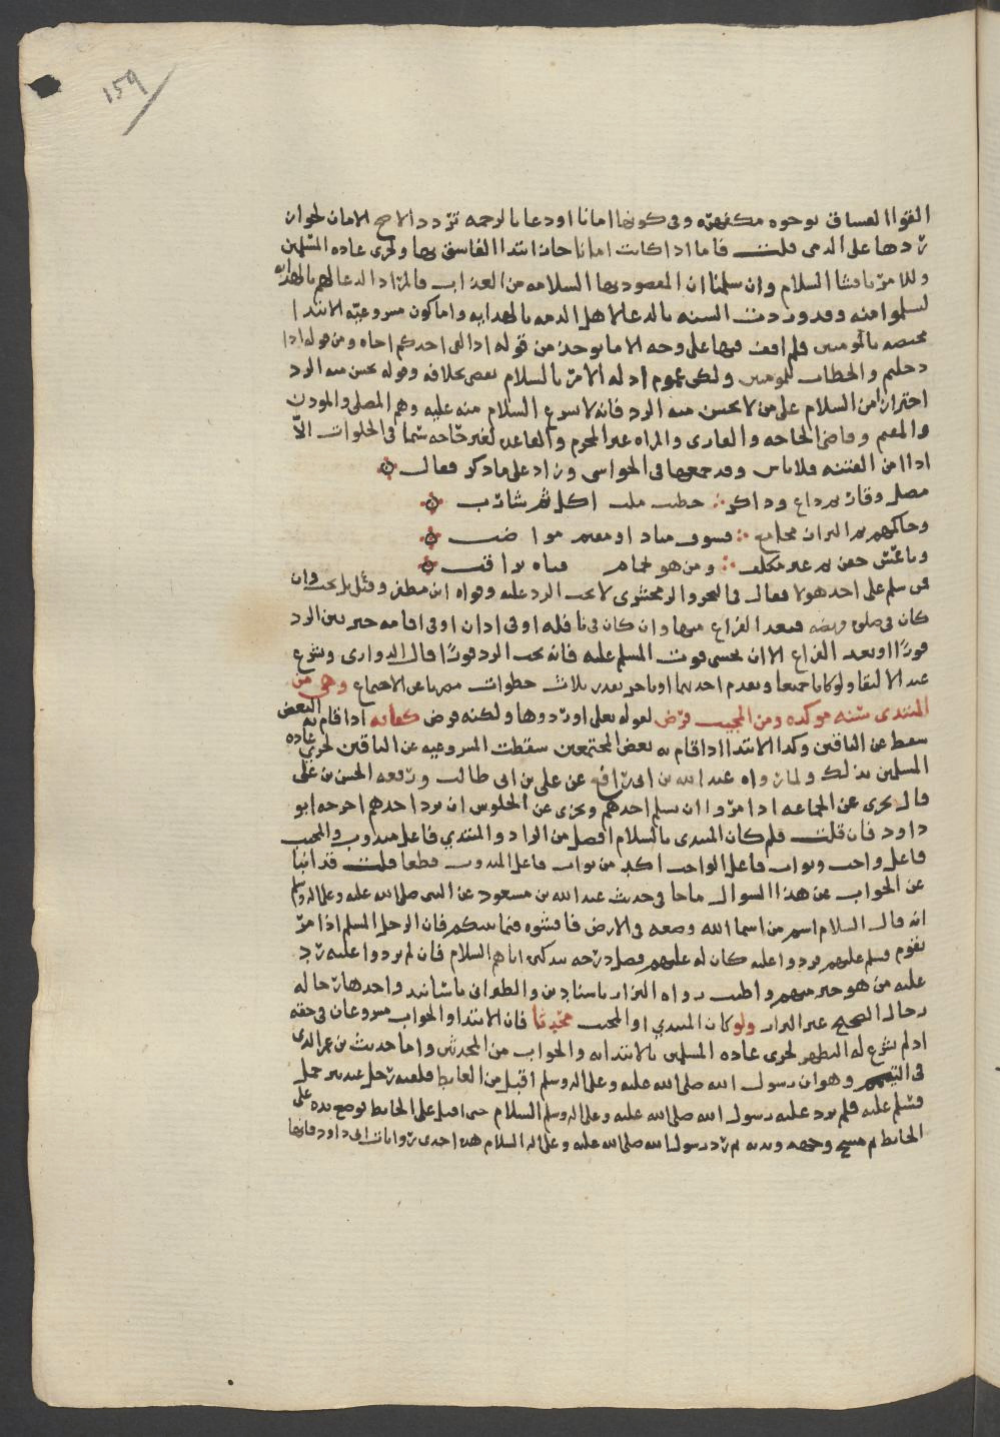 159
القوا الفساق بوجوه مكفهره وفى كونها امانا او دعا بالرحمه تردد الاصح الامان لجواز
ردها على الذمى قلت فاما اذا كانت امانا جاز ابتدا الفاسق بها ولجرى عاده المسلمين
وللامر بافشا السلام وان سلمنا ان المقصود بها السلامه من العذاب فالمراد الدعا لهم بالهدايه
ليسلموا منه وقد وردت السنه بالدعا لاهل الذمه بالهدايه واما كون مشروعيه الابتدا
مختصه بالمومنين فلم اقف فيها على وجه الا ما يوخذ من قوله اذا لقى احدكم اخاه ومن قوله اذا
دخلتم والخطاب للمومنين ولكن عموم ادله الامر بالسلام يقضى بخلافه وقوله يحسن منه الرد
احترازا من السلام على من لا يحسن منه الرد فانه لا يشرع السلام منه عليه وهم المصلى والموذن
والمقيم وقاضى الحاجه والقارى والمراه غير المحرم والقاعد لغير حاجه سيما فى الخلوات الا
اذا امن الفتنه فلا باس وقد جمعها فى الحواشى وزاد على ما ذكر فقال
مصل وقار ثم داع وذاكر ∴ خطيب ملب اكل ثم شارب
وحاكمهم ثم الـ ∴ فسوق منادا ومقيم مواضب
ومن هو فى حمام
فمن سلم على احد هولا فقال فى البحر والزمخشرى لا يجب الرد عليه وقواه ابن مظفر وقيل بل يجب وان
كان فى صلوه فريضه فبعد الفراغ منها وان كان فى نافله او فى اذان او فى اقامه خير بين الرد
فورا او بعد الفراغ الا ان يخشى فوت المسلم عليه فانه يجب الرد فورا قال الدوارى وتشرع
عند الالتقا ولو كانا جميعا وتقدم احدهما او تاخر بقدر ثلاث خطوات عن الاجتماع وهى من
المبتدى سنه موكده ومن المجيب فرض لقوله تعلى او ردوها ولكنه فرض كفايه اذا قام به البعض
سقط عن الباقين وكذا الابتدا اذا قام به بعض المجتمعين سقطت المشروعيه عن الباقين لجرى عاده
المسلمين بذلك ولما رواه عبد الله بن ابى رافع عن على بن ابى طالب ورفعه الحسن بن على
قال يجزى عن الجماعه اذا مروا ان يسلم احدهم ويجزى عن الجلوس ان يرد احدهم اخرجه ابو
داود فان قلت فلم كان المبتدى بالسلام افضل من الراد والمبتدي فاعل مندوب والمجيب
فاعل واجب وثواب فاعل الواجب اكثر من ثواب فاعل المندوب قطعا قلت قد
عن الجواب عن هذا السوال ما جا فى حديث عبد الله بن مسعود عن النبى صلى الله عليه وعلى اله وسلم
انه قال السلام اسم من اسما الله وضعه فى الارض فافشوه فيما بينكم فان الرجل المسلم اذا مر
بقوم فسلم عليهم فردوا عليه كان له عليهم فضل درجه بتذكيره اياهم السلام فان لم يردوا عليه رد
عليه من هو خير منهم واطيب رواه البزار باسنادين والطبرانى باسانيد واحدها رجاله
رجال الصحيح عند البزار ولو كان المبتدي او المجيب محدثا فان الابتدا والجواب مشروعان فى حقه
اذ لم يشرع له التطهر لجرى عاده المسلمين بالابتدا به والجواب من المحدثين واما حديث بن عمر الذى
فى التيمم وهو ان رسول الله صلى الله عليه وعلى اله وسلم اقبل من الغايط فلقيه رجل عند بير جمل
فسلم عليه فلم يرد عليه رسول الله صلى الله عليه وعلى اله وسلم السلام حتى اقبل على الحايط فوضع يده على
الحايط ثم مسح وجهه ويديه ثم رد رسول الله صلى الله عليه وعلى اله السلام هذه احدى روايات ابى داود فانها